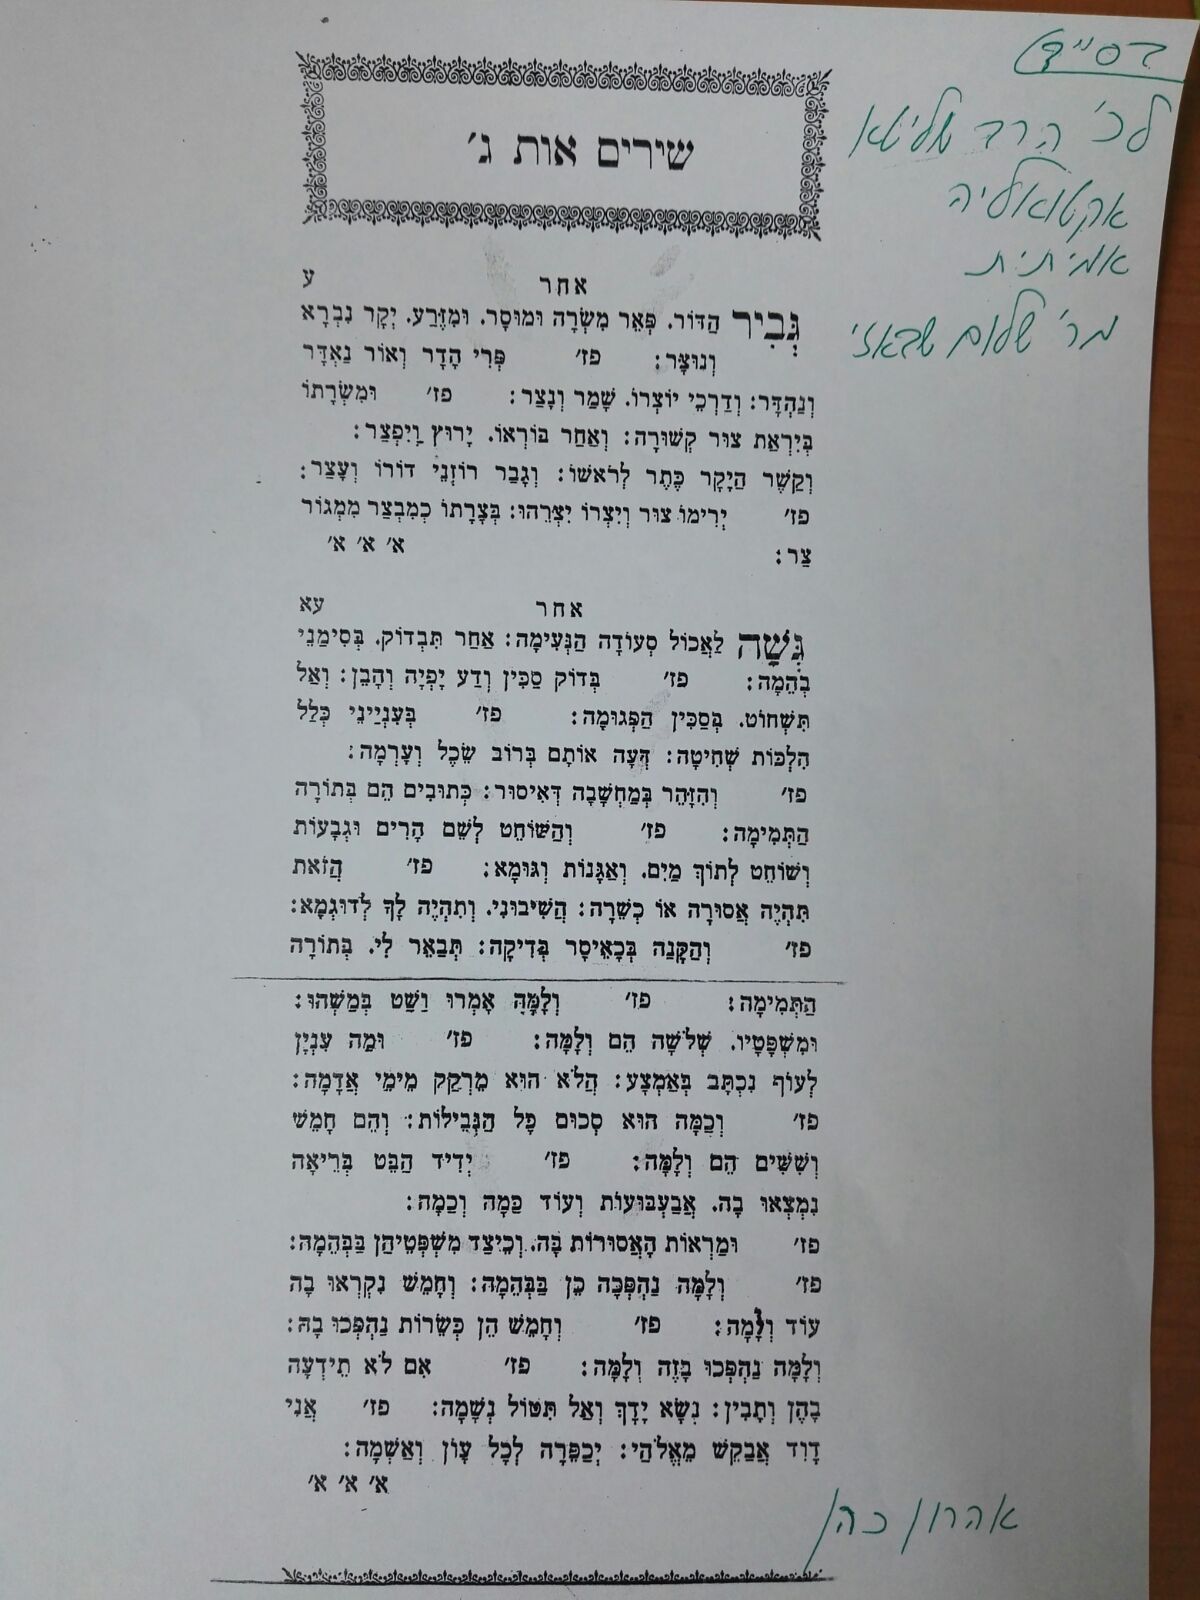 בס״ד
לכ׳ הרב שליטא
אקטואליה
אמיתית
מר׳ שלום שבאזי
שירים אות ג׳
אחר ע
גְּבִיר הַדּוֹר. פְּאֵר מִשְׂרָה וּמוּסָר. וּמִזֶּרַע. יְקָר נִבְרָא
וְנוּצָּר: פז׳ פְּרִי הָדָר וְאוֹר נֶאְדָּר
וְנֶהְדָּר: וְדַרְכֵי יוֹצְרוֹ. שָׁמַר וְנָצַר: פז׳ וּמִשְׂרָתוֹ
בְּיִרְאַת צוּר קְשׁוּרָה: וְאַחַר בּוֹרְאוֹ. יָרוּץ וְיִפְצַר:
וְקַשֶּׁר הַיָּקָר כֶּתֶר לְרֹאשׁוֹ: וְגָבַר רוֹזְנֵי דוֹרוֹ וְעָצַר:
פז׳ יְרִימוֹ צוּר וְיִצְרוֹ יִצְּרֵהוּ: בְּצָרָתוֹ כְּמִבְצַר מִמְּגוֹר
צַר: א׳ א׳ א׳
אחר עא
גְּשָׁה לֶאֱכוֹל סְעוּדָה הַנְּעִימָה: אַחַר תִּבְדּוֹק. בְּסִימָנֵי
בְהֵמָה: פז׳ בְּדוֹק סַכִּין וְדַע יָפְיָהּ וְהָבֵן: וְאַל
תִּשְׁחוֹט. בְּסַכִּין הַפְּגוּמָה: פז׳ בְּעִנְיְינֵי כְּלַל
הִלְכוֹת שְׁחִיטָה: דְּעֶה אוֹתָם בְּרוֹב שֵׂכֶל וְעָרְמָה:
פז׳ וְהִזָּהֵר בְּמַחְשָׁבָה דְּאִיסּוּר: כְּתוּבִים הֵם בְּתוֹרָה
הַתְּמִימָה: פז׳ וְהַשּׁוֹחֵט לְשֵׁם הָרִים וּגְבָעוֹת
וְשׁוֹחֵט לְתוֹךְ מַיִם. וְאַגָּנוֹת וְגוּמָא: פז׳ הֲזֹאת
תִּהְיֶה אֲסוּרָה אוֹ כְשֵׁרָה: הֲשִׁיבוּנִי. וְתִהְיֶה לָךְ לְדוּגְמָא:
פז׳ וְהַקָּנֶה בְּכָאִיסָר בְּדִיקָה: תְּבַאֵר לִי. בְּתוֹרָה
הַתְּמִימָה: פז׳ וְלָמָּה אָמְרוּ וֵשֶׁט בְּמַשְׁהוּ:
וּמִשְׁפָּטָיו. שְׁלֹשָׁה הֵם וְלָמָּה: פז׳ וּמַה עִנְיָן
לְעוֹף נִכְתַּב בְּאֶמְצַע: הֲלֹא הוּא מֵרְקַק מֵימֵי אֲדָמָה:
פז׳ וְכַמָּה הוּא סְכוּם כָּל הַנְּבֵילוֹת: וְהֵם חָמֵשׁ
וְשִׁשִּׁים הֵם וְלָמָּה: פז׳ יְדִיד הַבֵּט בְּרֵיאָה
נִמְצְאוּ בָהּ. אֲבַעְבּוּעוֹת וְעוֹד כַּמָּה וְכַמָּה:
פז׳ וּמַרְאוֹת הָאֲסוּרוֹת בָּהּ. וְכֵיצַד מִשְׁפְּטֵיהֶן בַּבְּהֵמָה:
פז׳ וְלָמָּה נֶהְפְּכָה כֵן בַּבְּהֵמָה: וְחָמֵשׁ נִקְרְאוּ בָהּ
עוֹד וְלָמָּה: פז׳ וְחָמֵשׁ הֵן כְּשֵׁרוֹת נֶהְפְּכוּ בָהּ:
וְלָמָּה נֶהְפְּכוּ בָזֶה וְלָמָּה: פז׳ אִם לֹא תֵידְעָה
בָהֶן וְתָבִין: נְשָׂא יָדָךְ וְאַל תִּטּוֹל נְשָׁמָה: פז׳ אֲנִי
דָוִד אֲבַקֵּשׁ מֵאֱלֹהַי: יְכַפֵּרָה לְכָל עָוֹן וְאַשְׁמָה:
א׳ א׳ א׳
אהרון כהן